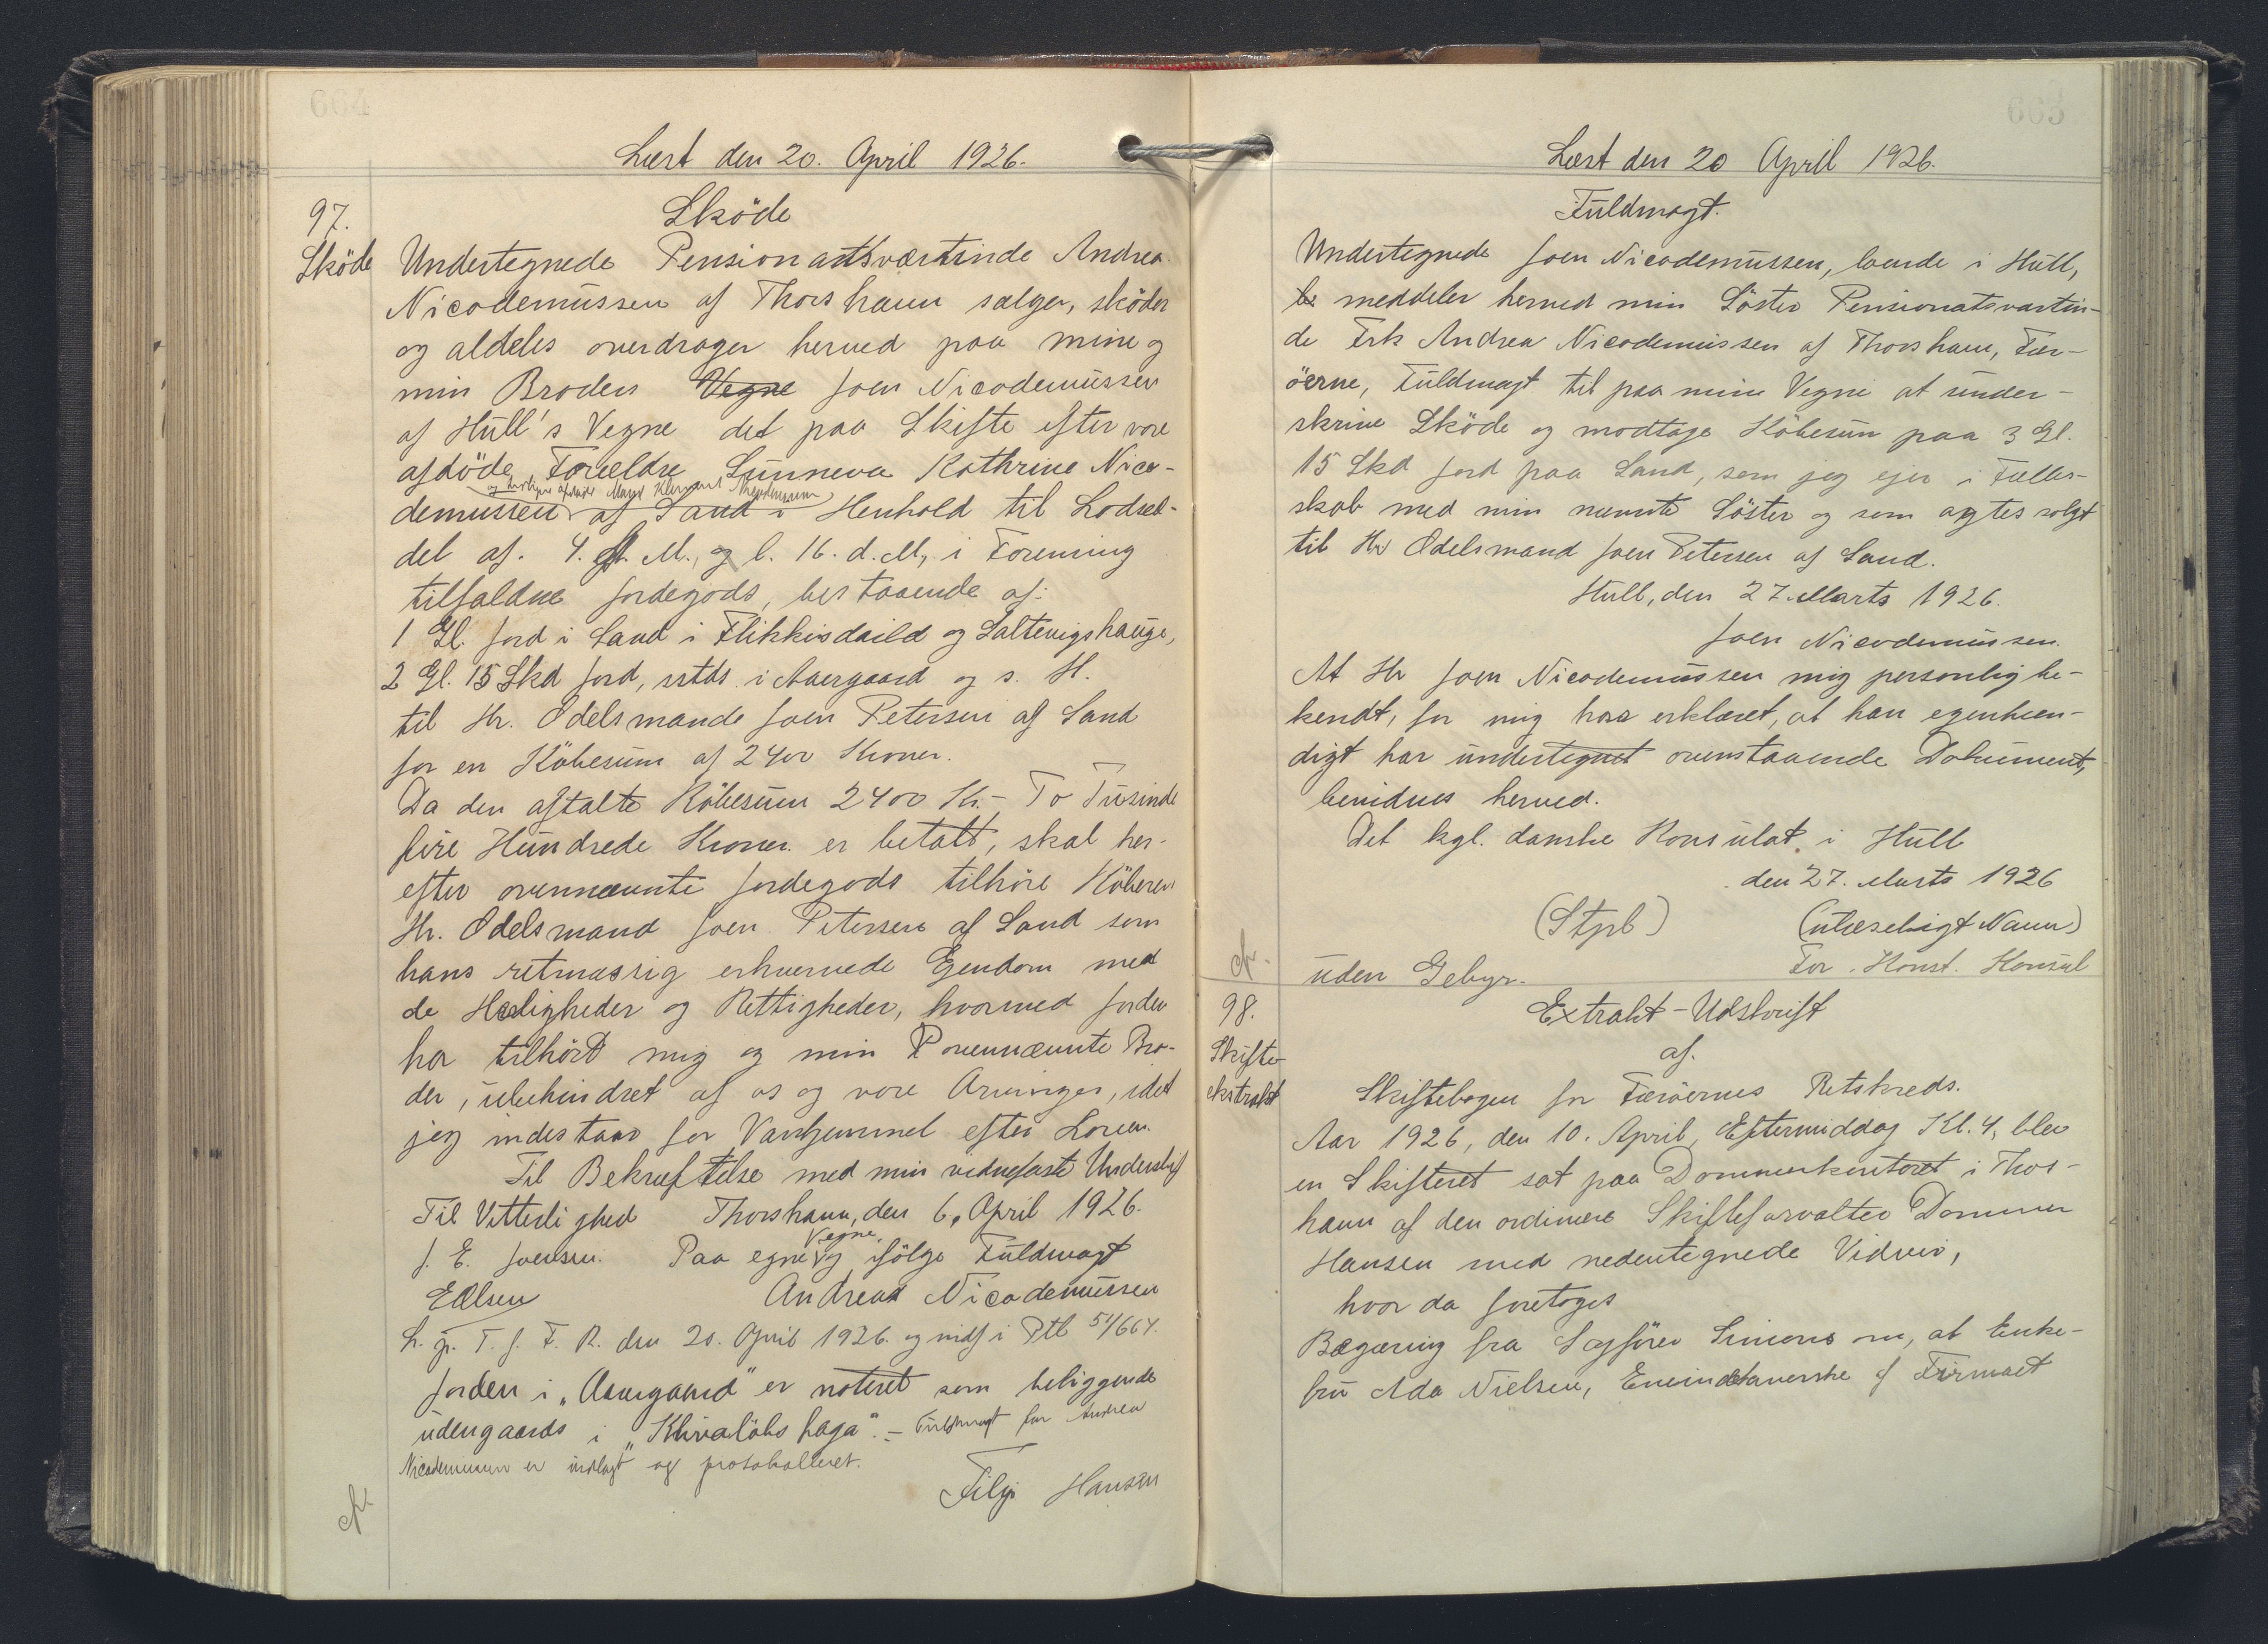 664
Læst den 20. April 1926.
97.
Sköde
Sköde
Undertegnede Pensionatsværtinde Andrea
Nicodemussen af Thorshavn sælger, sköder
og aldeles overdrager herved paa min og
min Broders Vegne Joen Nicodemussen
af Hull's Vegne det paa Skifte efter vore
afdöde Forældre Sunneva Kathrine Nico-
og tidligere afdöde Nicodemussen
demussen af Sand i Henhold til Lodsed-
del af. 4. M., og l. 16. d. M, i Forening
tilfaldne Jordegods, bestaaende af:
1 Gl. Jord i Sand i Flikkisdaild og Saltevigshauge,
2 Gl. 15 Skd Jord, sstds. i Aaergaard og s. H.
til Hr. Odelsmande Joen Petersen af Sand
for en Köbesum af 2400 Kroner.
Da den aftalte Köbesum 2400 Kr. - To Tusinde
fire Hundrede Kroner er betalt, skal her-
efter ovennævnte Jordegods tilhöre Köberen
Hr. Odelsmand Joen Petersen af Sand som
hans retmæssig erhvervede Ejendom med
de Herligheder og Rettigheder, hvormed Jorden
har tilhört mig og min ovennævnte Bro-
der, ubehindret af os og vore Arvinger, idet
jeg indestaar for Vanhjemmel efter Loven.
Til Bekræftelse med min vidnefaste Underskrift
Til Vitterlighed Thorshavn, den 6. April 1926.
Vegne
J. E. Joensen. Paa egne og ifölge Fuldmagt
EOlsen Andrea Nicodemussen
L. p. T. f. F. R. den 20. April 1926. og indf i Ptl 51/664.
Jorden i „Aaergaard" er noteret som beliggende
udengaards i „Klivalöks haga". - Fuldmagt for Andrea
Nicodemussen er indlagt og protokolleret.
Filip Hansen
cfr.
663
Læst den 20 April 1926.
Fuldmagt.
Undertegnede Joen Nicodemussen, boende i Hull,
be meddeler herved min Söster Pensionatsværtin-
de Frk Andrea Nicodemussen af Thorshavn, Fær-
öerne, Fuldmagt til paa mine Vegne at under-
skrive Sköde og modtage Köbesum paa 3 Gl.
15 Skd Jord paa Sand, som jeg ejer i Fælles-
skab med min nævnte Söster og som agtes solgt
til Hr Odelsmand Joen Petersen af Sand.
Hull, den 27. Marts 1926.
Joen Nicodemussen.
At Hr Joen Nicodemussen mig personlig be-
kendt, for mig har erklæret, at han egenhæn-
digt har undertegnet ovenstaaende Dokument,
bevidnes herved.
Det kgl. danske Konsulat i Hull
den 27. Marts 1926
(Stpl) (ulæseligt Navn)
For. Konst. Konsul
cfr.
uden Gebyr.
98.
Extrakt-Udskrift
Skifte-
ekstrakt
af
Skiftebogen for Færöernes Retskreds.
Aar 1926, den 10. April, Eftermiddag Kl. 4, blev
en Skifteret sat paa Dommerkontoret i Thors-
havn af den ordinære Skifteforvalter Dommer
Hansen med nedentegnede Vidner,
hvor da foretoges
Begæring fra Sagförer Simons om, at Enke-
fru Ada Nielsen, Eneindehaverske af Firmaet